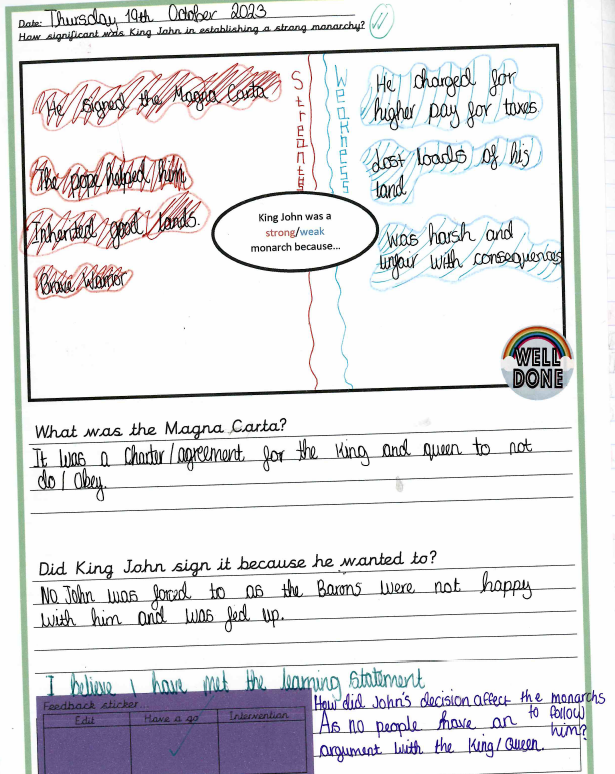 Date: Thursday 19th October 2023
How significant was King John in establishing a strong monarchy?
Streants
Weakness
He signed the Magna Carta
The pope helped him
Inherited good lands.
Brave Warrior
He charged for
higher pay for taxes
Lost loads of his
land
Was harsh and
unfair with consequences
King John was a
strong/weak
monarch because...
WELL
DONE
What was the Magna Carta?
It was a Charter/agreement for the King and queen to not
do/ Obey.
Did King John sign it because he wanted to?
No John was forced to as the Barons were not happy
with him and was fed up.
I believe I have met the learning statement
Feedback sticker...
Edit Have a go Intervention
How did John's decision affect the monarchs
to follow
him?
As no people have an
argument with the King/Queen.